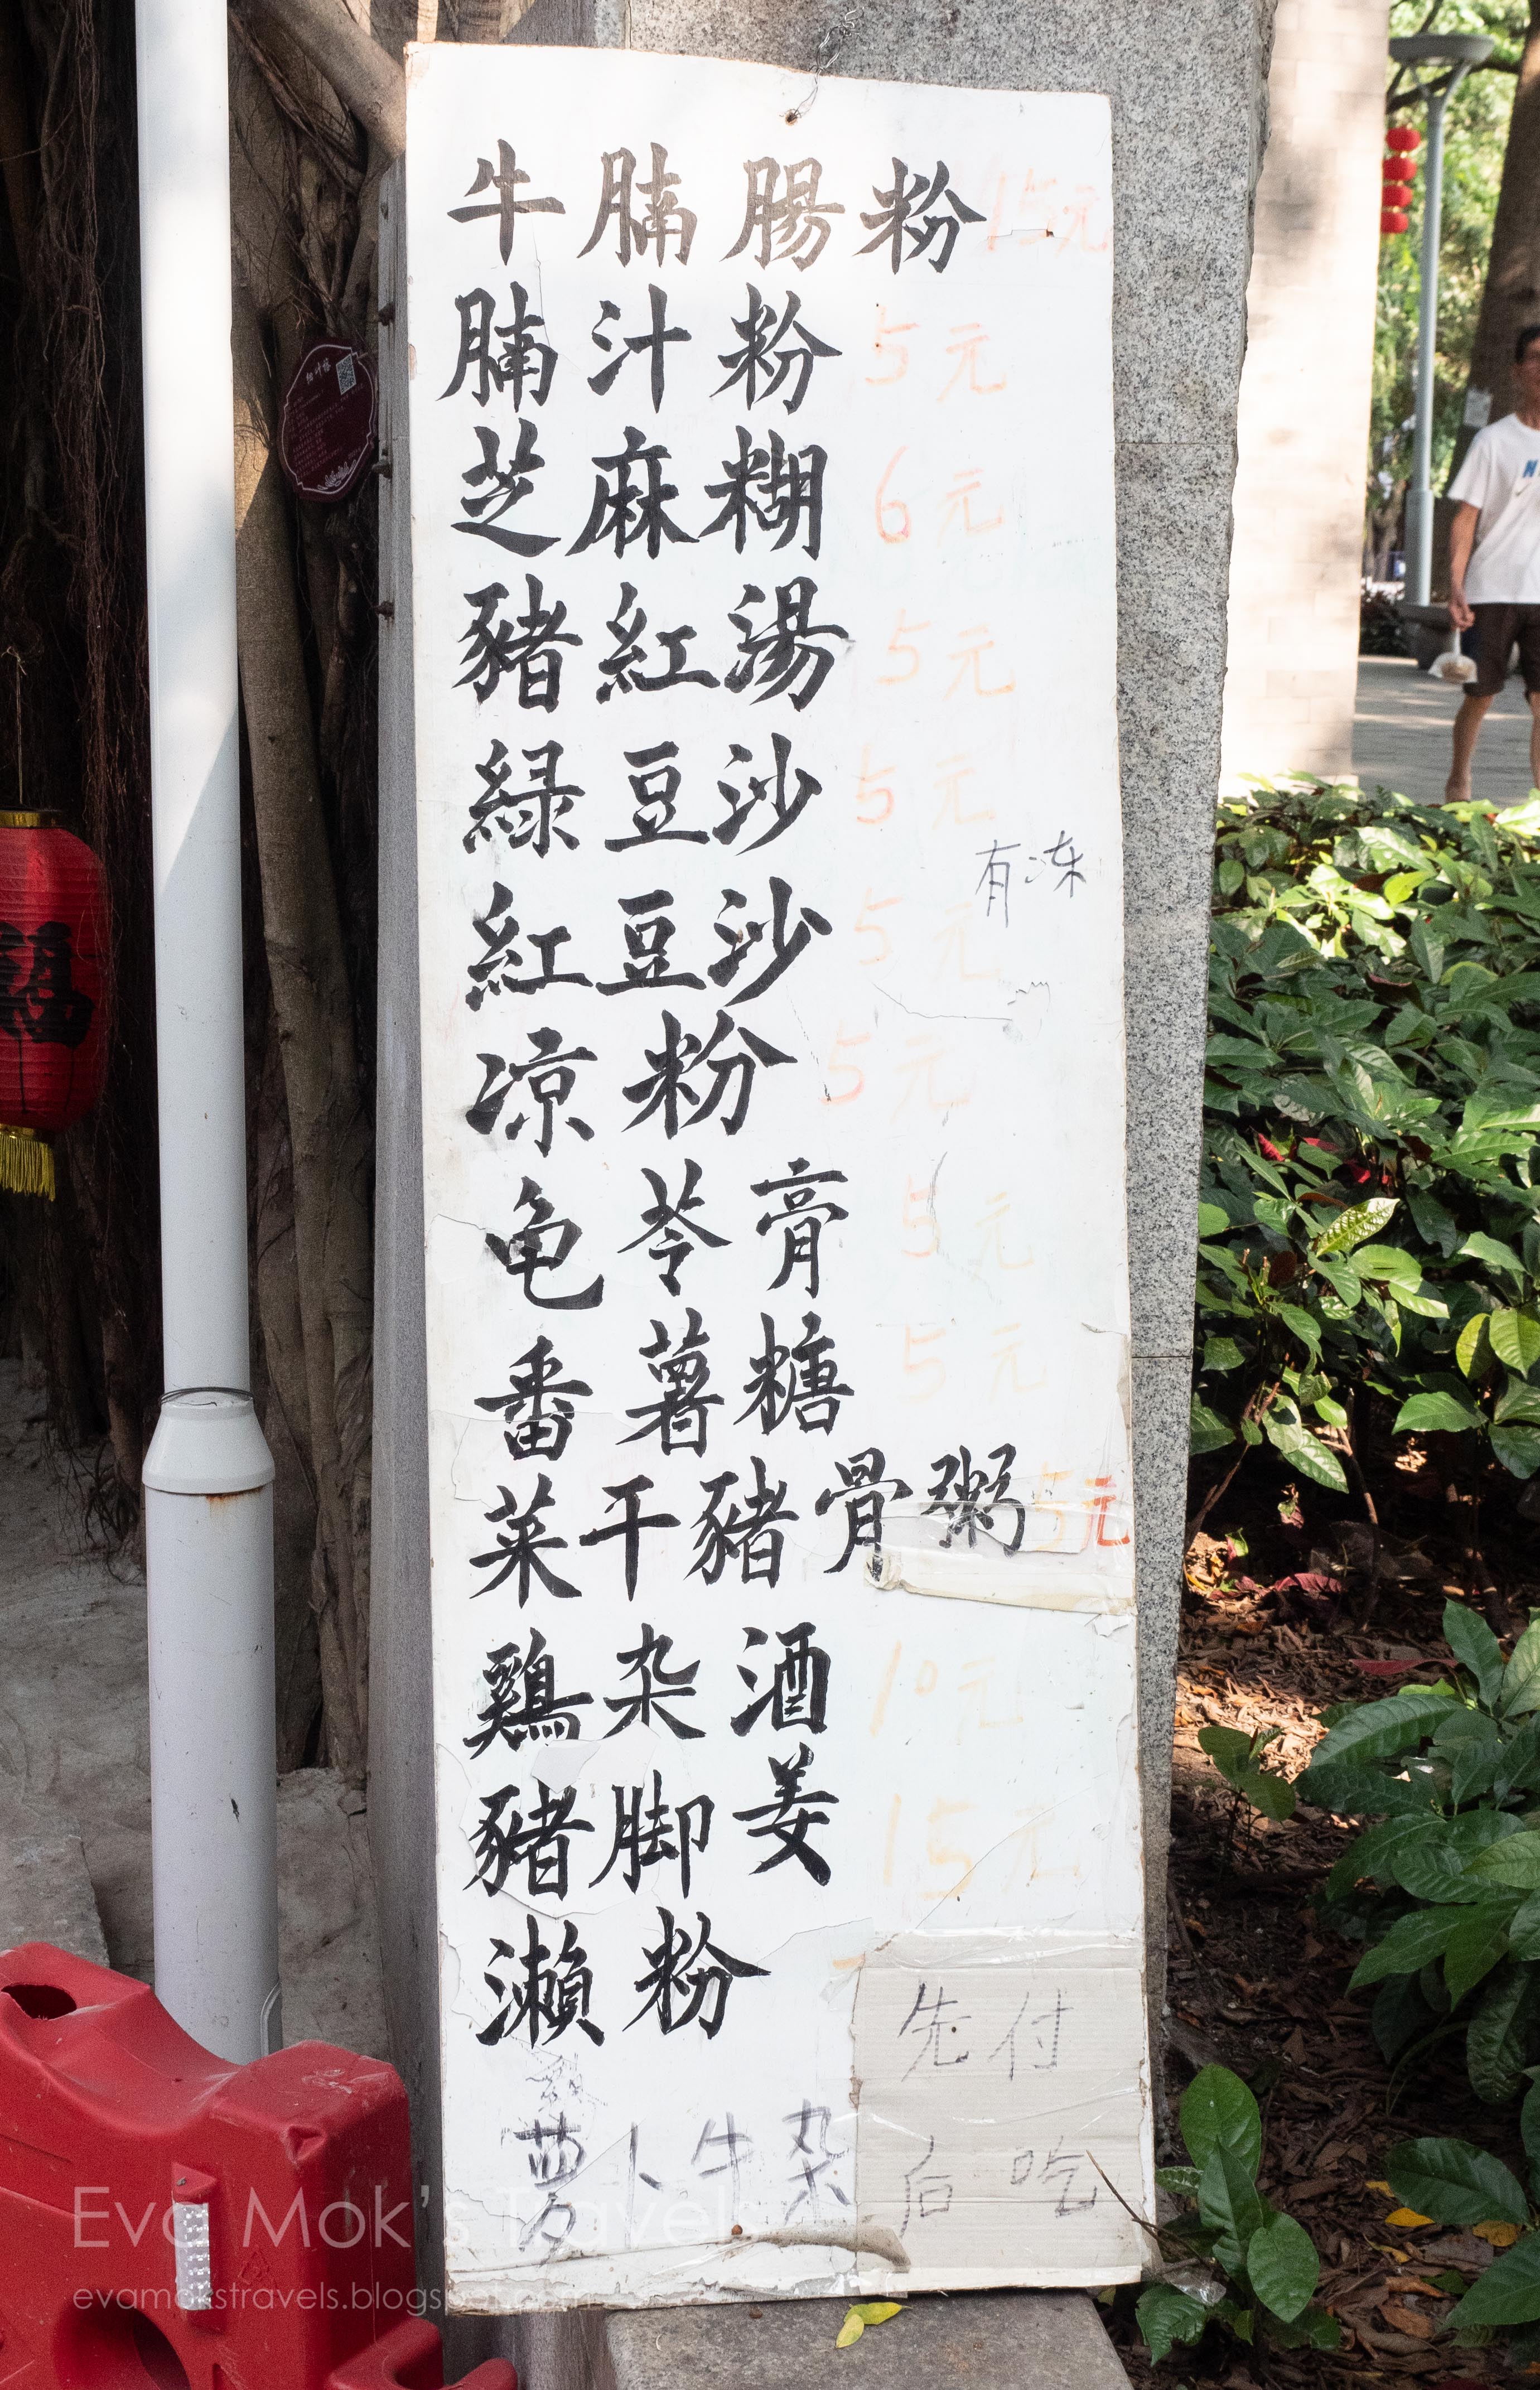 牛腩腸粉 15元
腩汁粉 5元
芝麻糊 6元
豬紅湯 5元
緑豆沙 5元
有冻
紅豆沙 5元
凉粉 5元
龟苓膏 5元
番薯糖 5元
菜干豬骨粥 5元
鷄杂酒 10元
豬脚姜 15元
瀨粉
萝卜牛杂
先付
后吃
福
N
Eva Mok's Travels
evamokstravels.blogspot.com